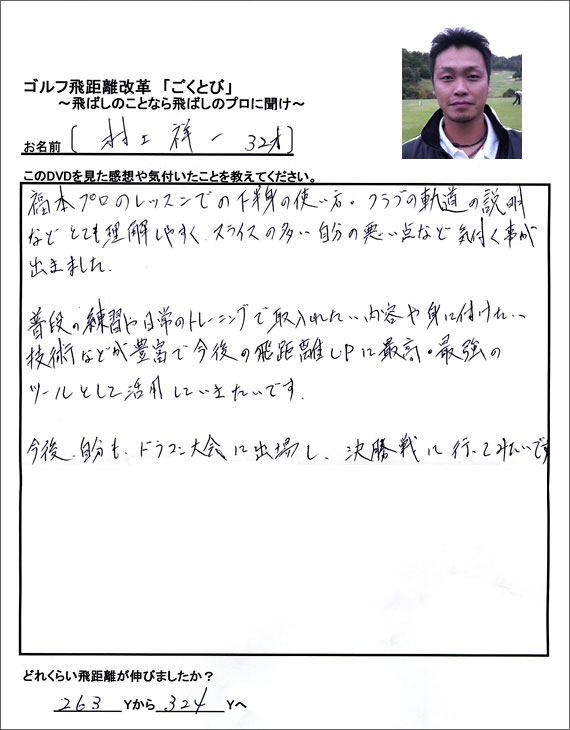 ゴルフ飛距離改革 「ごくとび」
～飛ばしのことなら飛ばしのプロに聞け～
お名前 〔 村上 祥一 32才 〕
このDVDを見た感想や気付いたことを教えてください。
福本プロのレッスンでの下半身の使い方。クラブの軌道の説明
など とても理解しやすく、スライスの多い自分の悪い点など気付く事が
出来ました。
普段の練習や日常のトレーニングで取入れたい内容や身に付けたい
技術などが豊富で今後の飛距離UPに最高・最強の
ツールとして活用していきたいです。
今後、自分も、ドラコン大会に出場し、決勝戦に行ってみたいです
どれくらい飛距離が伸びましたか？
263 Yから 324 Yへ